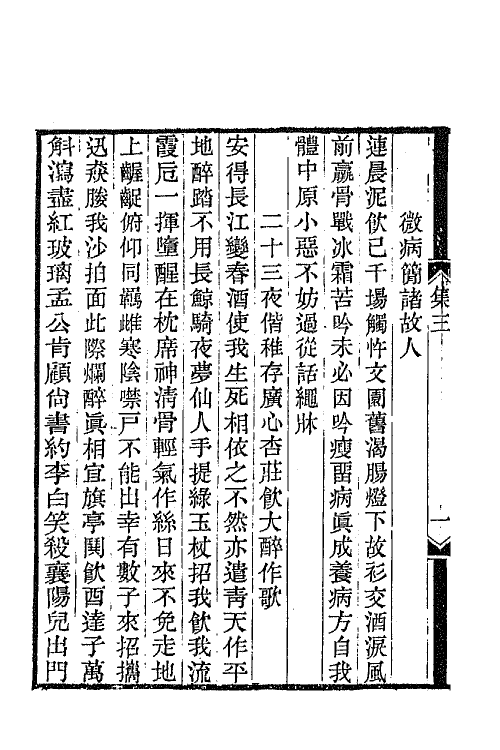 集三
一
微病簡諸故人
連晨泥飮已千場觸忤文園舊渴腸燈下故衫交酒淚風
前羸骨戰冰霜苦吟未必因吟瘦畱病眞成養病方自我
體中原小惡不妨過從話繩牀
二十三夜偕稚存廣心杏莊飮大醉作歌
安得長江變春酒使我生死相依之不然亦遣靑天作平
地醉踏不用長鯨騎夜夢仙人手提綠玉杖招我飮我流
霞卮一揮墮醒在枕席神淸骨輕氣作絲日來不免走地
上齷齪俯仰同羇雌寒陰噤戶不能出幸有數子來招攜
迅猋賸我沙拍面此際爛醉眞相宜旗亭鬨飮酉達子萬
斛瀉盡紅玻璃孟公肯顧尙書約李白笑殺襄陽兒出門